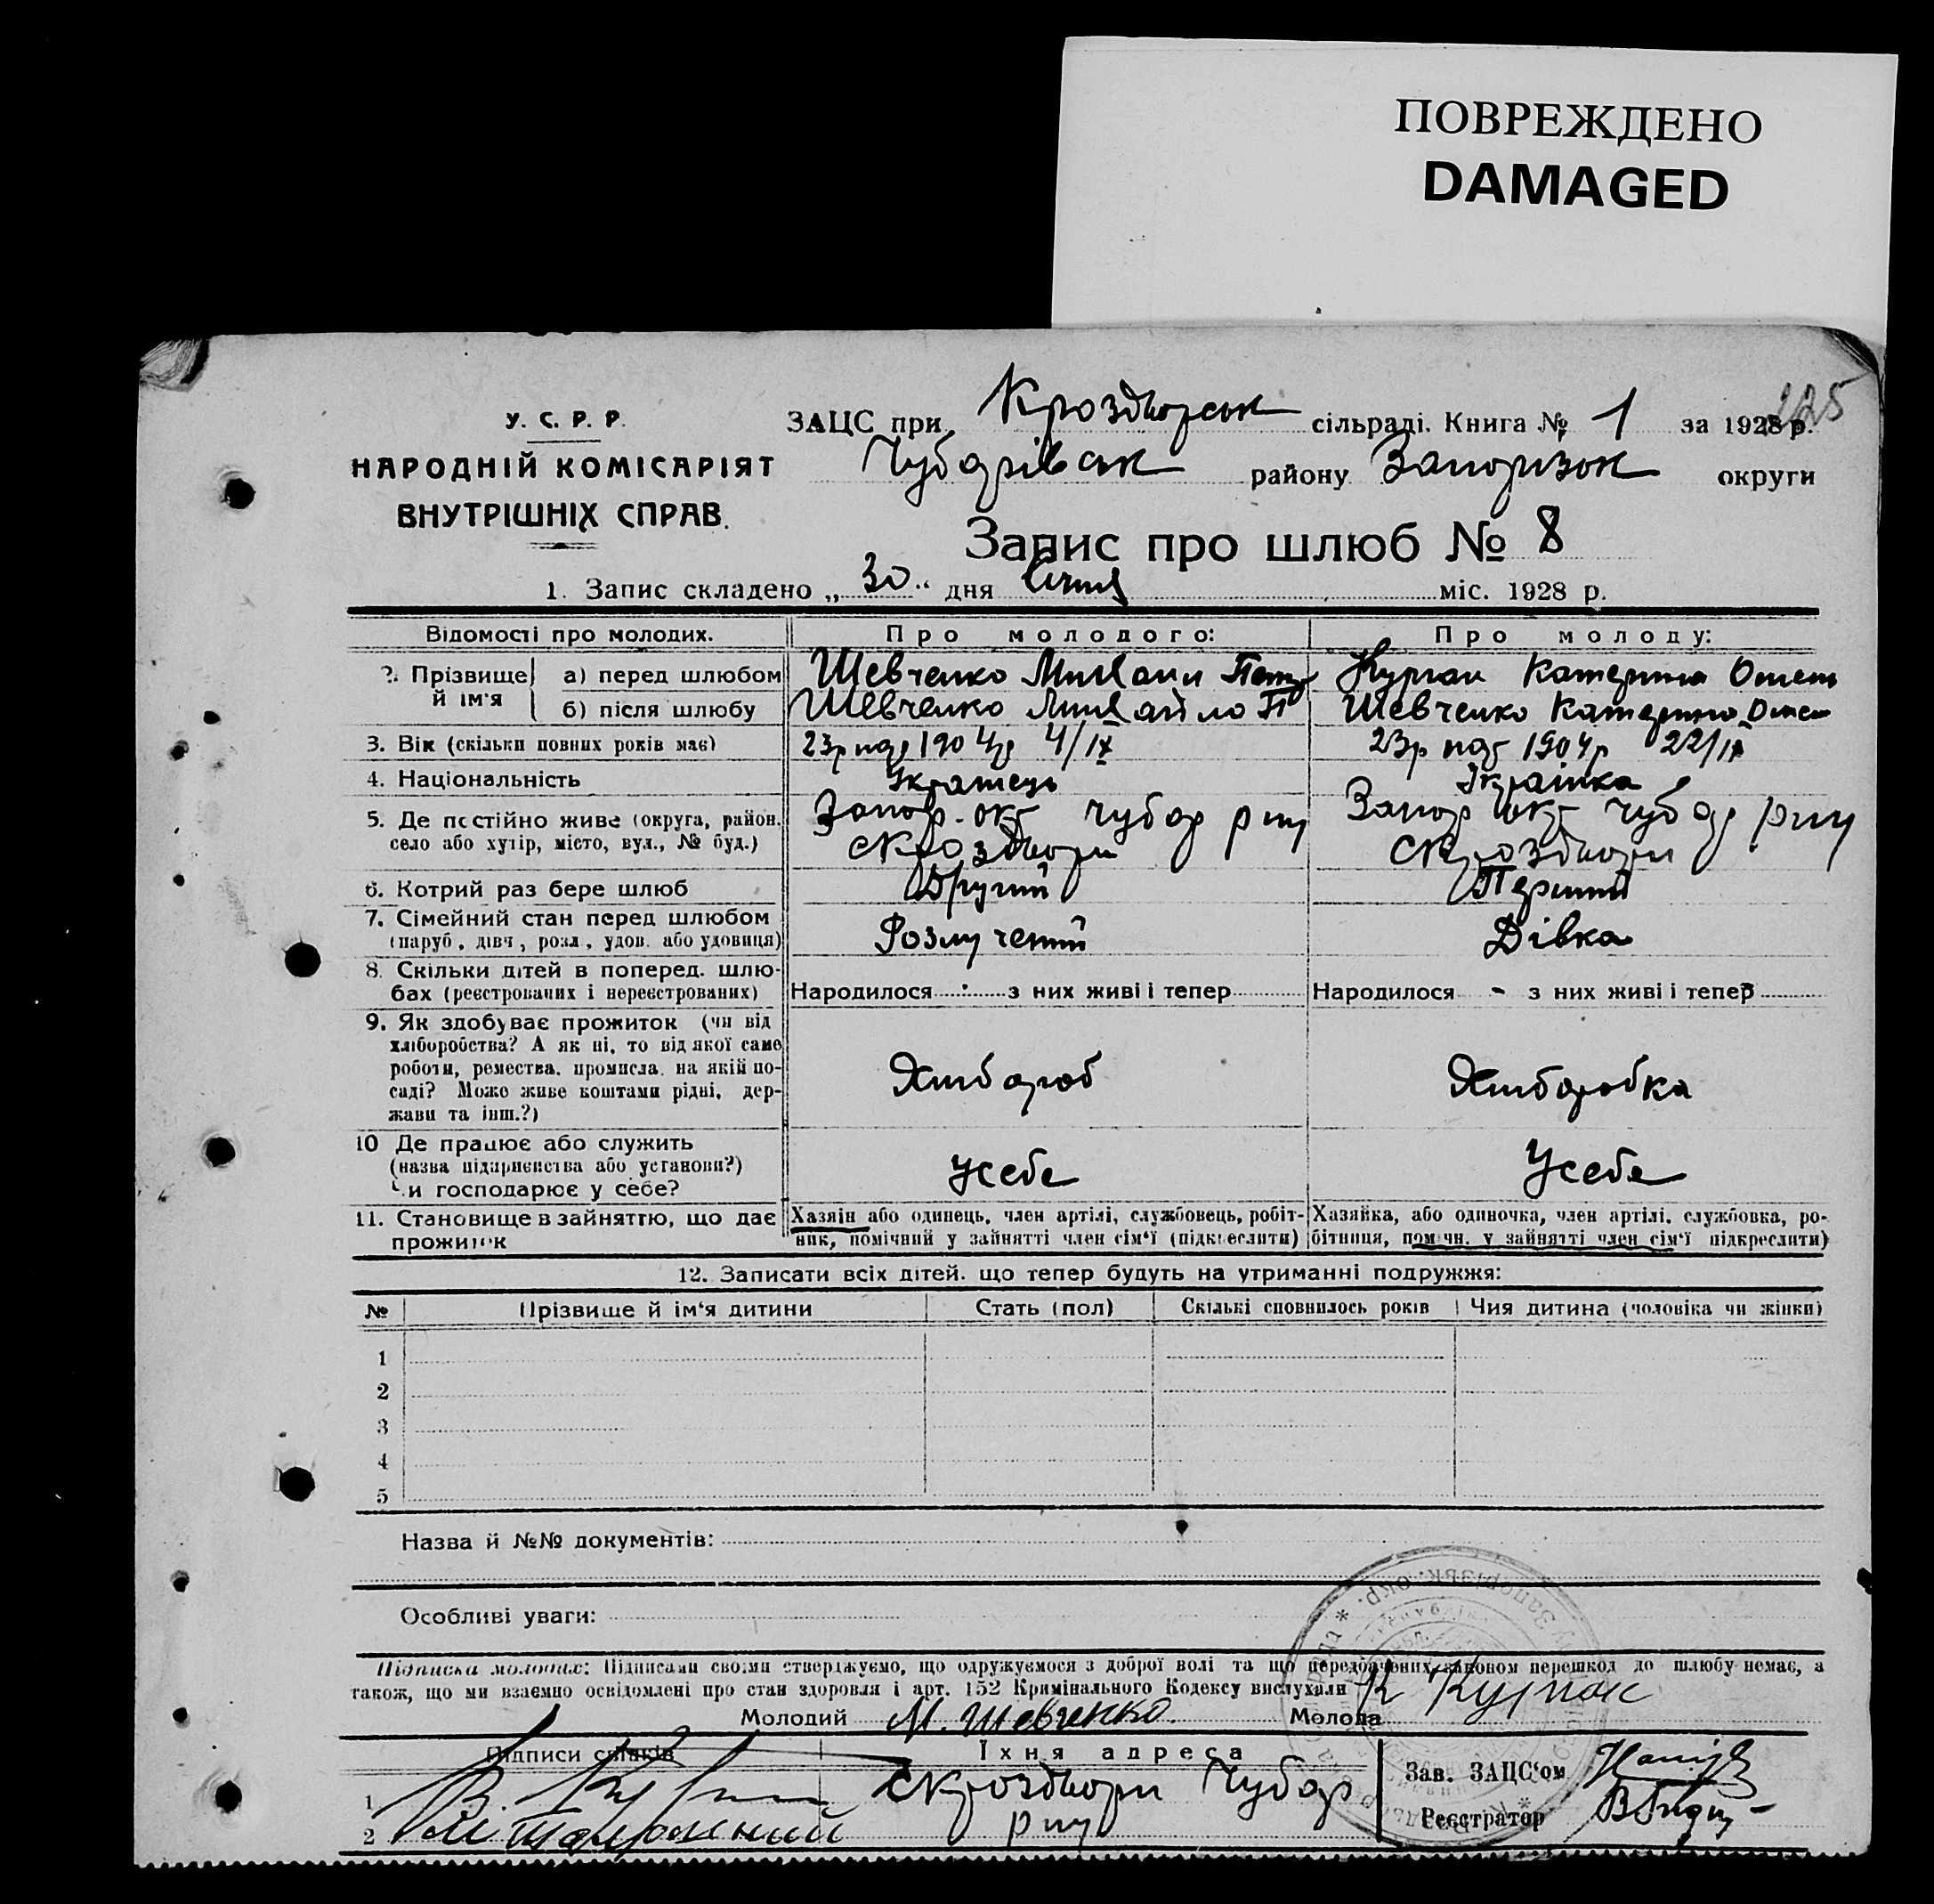 ПОВРЕЖДЕНО
DAMAGED
225
У. С. Р. Р.
НАРОДНІЙ КОМІСАРІЯТ
ВНУТРІШНІХ СПРАВ.
ЗАЦС при Кроздворськ сільраді. Книга № 1 за 1928 р.
Чубарівськ району Запорізьк округи
Запис про шлюб № 8
1. Запис складено „ 30 “ дня Січня міс. 1928 р.
Відомості про молодих. Про молодого: Про молоду:
2. Прізвище й ім'я
а) перед шлюбом Шевченко Михаил Петр Курпак Катерина Омель
б) після шлюбу Шевченко Михайло П Шевченко Катерина Омел
3. Вік (скільки повних років має) 23р нар 1904р 4/IX 23р нар 1904р 22/IX
4. Національність Українець Українка
5. Де постійно живе (округа, район, село або хутір, місто, вул., № буд.)
Запор. окр Чубар р-ну Запор окр Чубар р-ну
с Кроздвори с Кроздвори
6. Котрий раз бере шлюб Другий Перший
7. Сімейний стан перед шлюбом
(паруб, дівч, розл, удов. або удовиця) Розлучений Дівка
8. Скільки дітей в поперед. шлю-
бах (реєстрованих і нереєстрованих) Народилося - з них живі і тепер Народилося - з них живі і тепер
9. Як здобуває прожиток (чи від
хліборобства? А як ні, то від якої саме
роботи, ремества, промисла, на якій по-
саді? Може живе коштами рідні, дер-
жави та інш.?)
Хлібороб Хліборобка
10 Де працює або служить
(назва підприємства або установи?)
Чи господарює у себе?
У себе У себе
11. Становище в зайняттю, що дає
прожиток
Хазяін або одинець, член артілі, службовець, робіт-
ник, помічний у зайнятті член сім'ї (підкреслити)
Хазяйка, або одиночка, член артілі, службовка, ро-
бітниця, помічн. у зайнятті член сім'ї підкреслити)
12. Записати всіх дітей, що тепер будуть на утриманні подружжя:
№ Прізвище й ім'я дитини Стать (пол) Скількі сповнилось років Чия дитина (чоловіка чи жінки)
1
2
3
4
5
Назва й №№ документів:
Особливі уваги:
Підписка молодих: Підписами своіми стверджуємо, що одружуємося з доброї волі та що передбачених законом перешкод до шлюбу немає, а
також, що ми взаємно освідомлені про стан здоровля і арт. 152 Кримінального Кодексу вислухали
Молодий М. Шевченко Молода К Курпак
Підписи свідків Їхня адреса
1
2
с Кроздвори Чубар
р-ну
Зав. ЗАЦС'ом
Реєстратор
Запорізьк. окр.